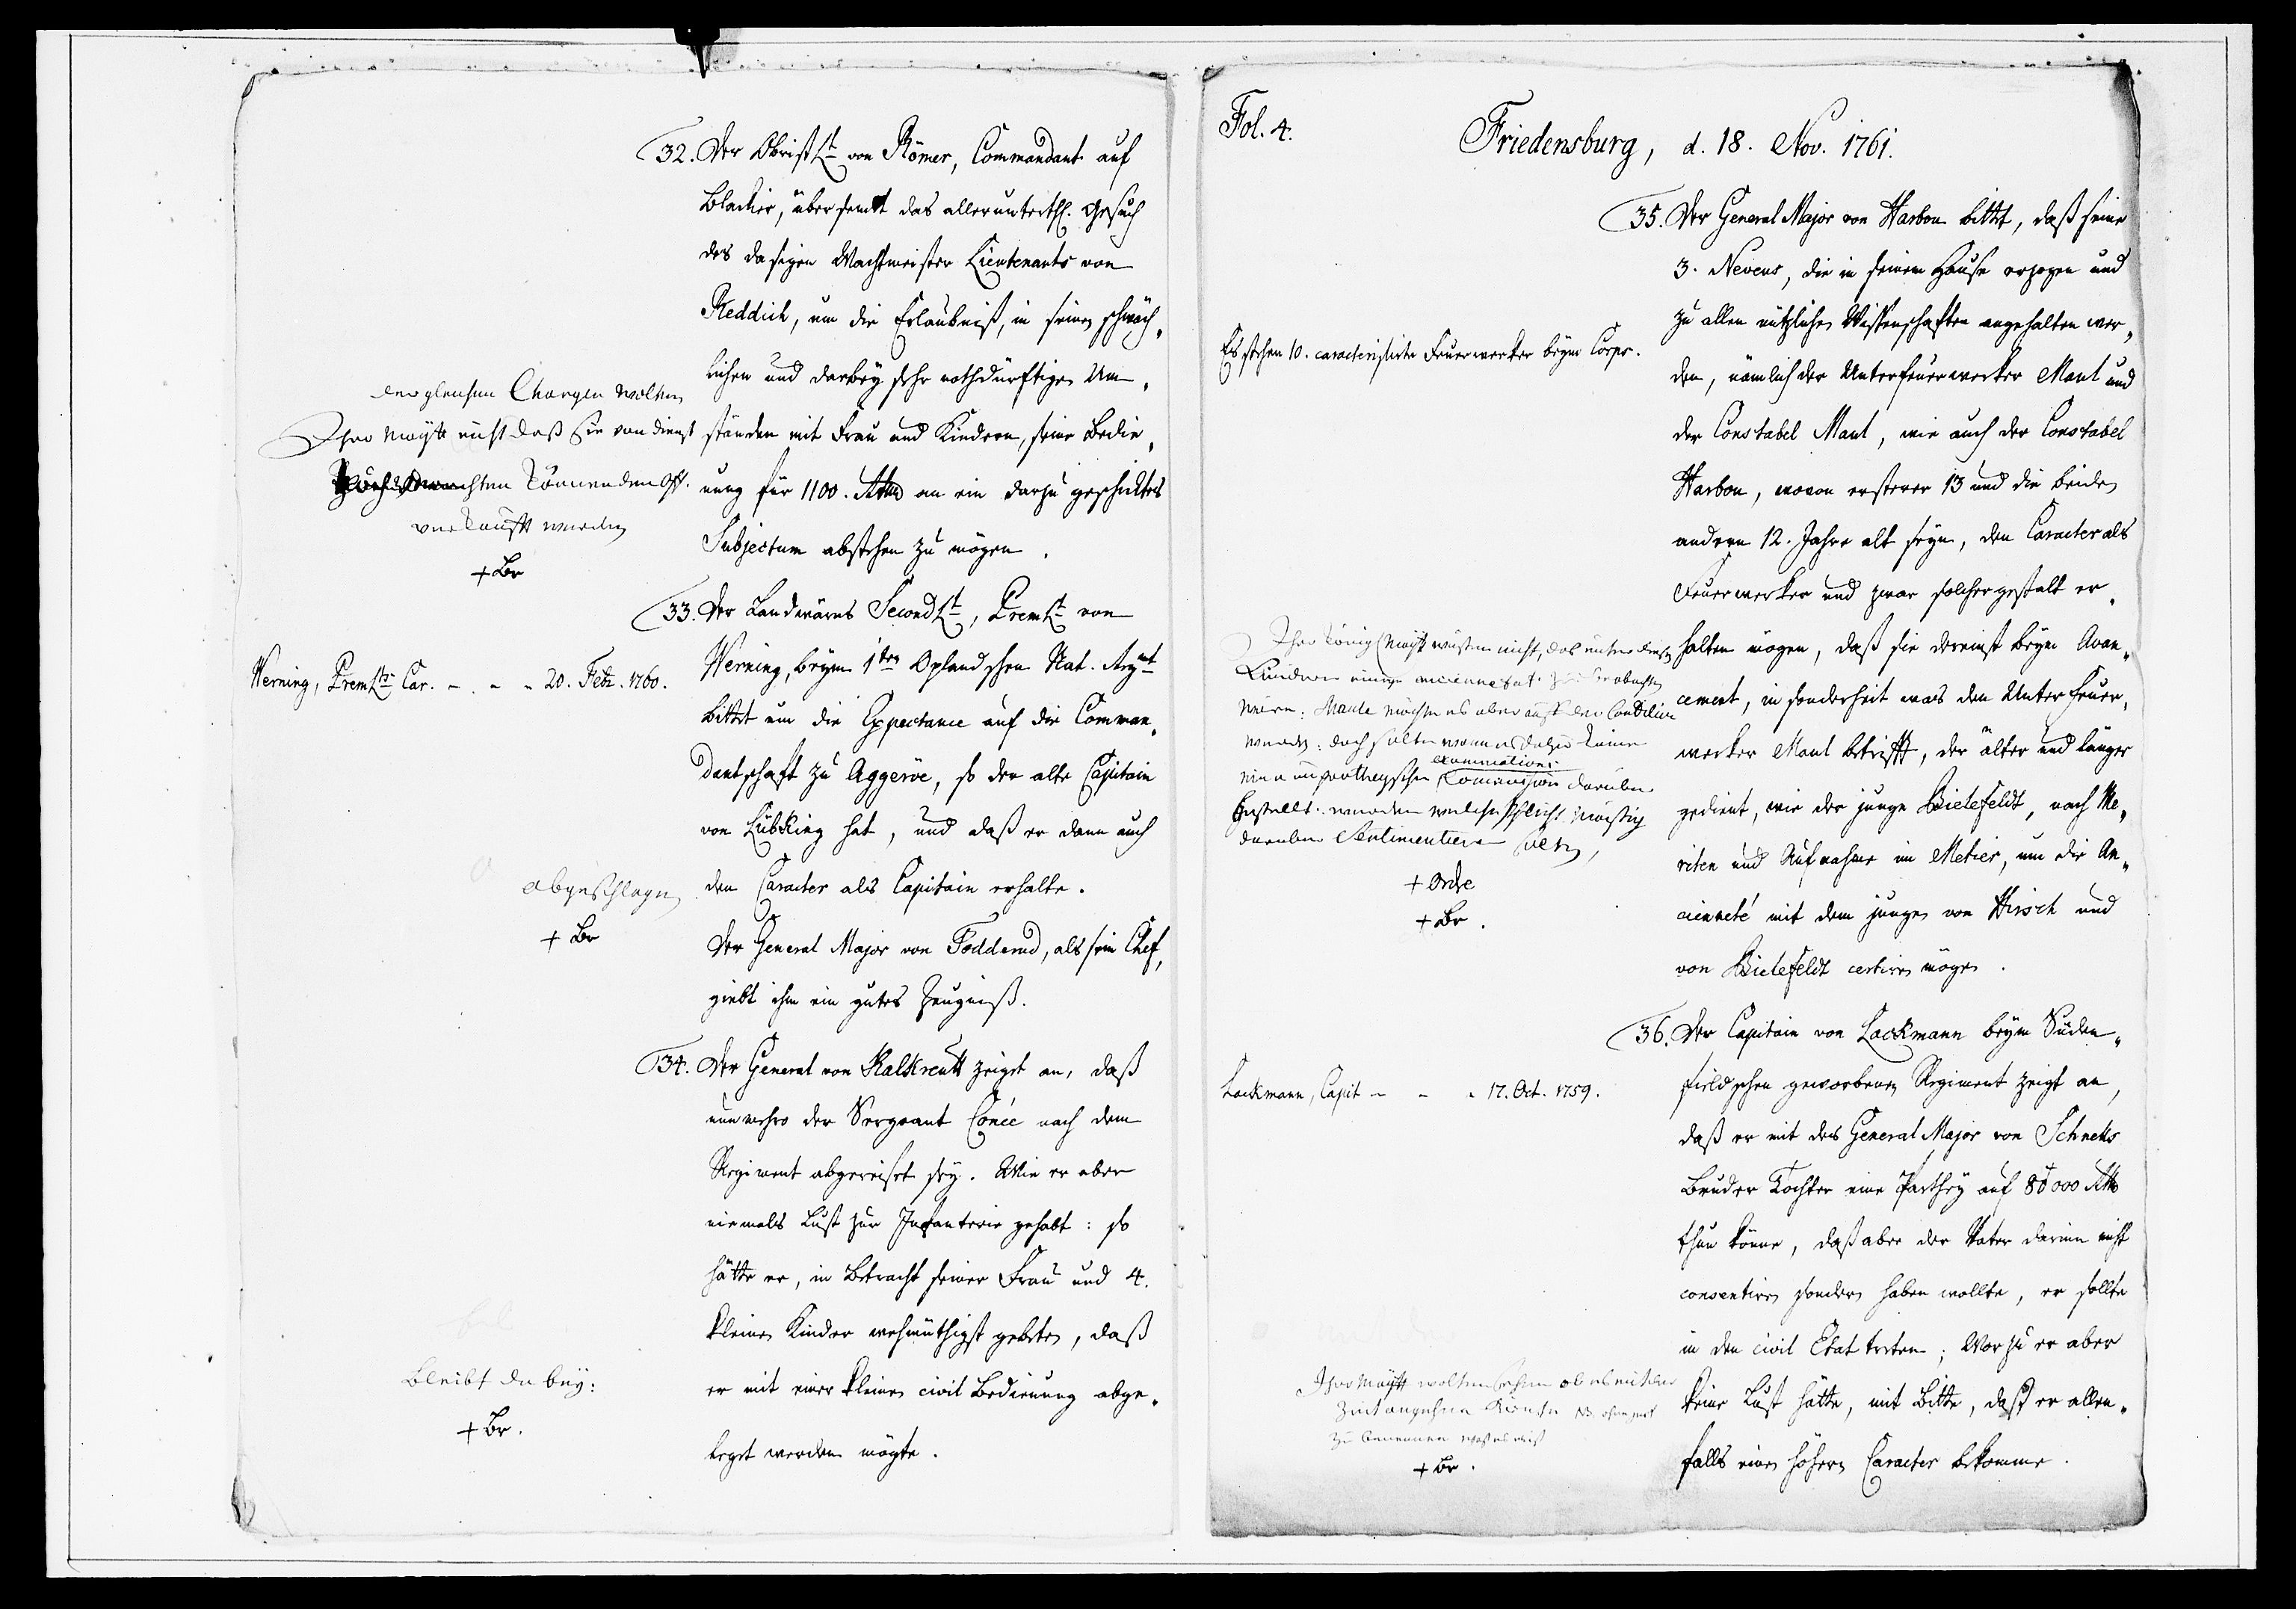 32. Der ObristLt von Römer, Commandant auf
Blackier, übersendet das allerunterth. Gesuch
des dasigen Wachtmeister Lieutenants von
Reddich, um die Erlaubniß, in seinen schwäch„
lichen und darbey sehr nothdürftigen Um„
ständen mit Frau und Kindern, seine Bedie„
nung für 1100. Rthlr an ein darzu geschicktes
Subjectum abstehen zu mögen.
dergleichen Chargen wolten
Ihro Maytt nicht daß sie von dienst
könnenden Off.
verkaufft werden
+ Br
33. Der Landwärns SecondLt, PremLt von
Werning, beym 1ten Oplandschen Nat. Regmt
bittet um die Expectance auf die Comman„
dantschaft zu Aggeröe, so der alte Capitain
von Lübking hat, und daß er dann auch
den Caracter als Capitain erhalte.
Der General Major von Födderud, als sein Chef,
giebt ihm ein gutes Zeugniß.
Werning, PremLts Car. - - - 20. Febr. 1760.
abgeschlagen
+ Br
34. Der General von Kalkreutt zeiget an, daß
nunmehro der Sergeant Conée nach dem
Regiment abgereiset sey. Wie er aber
niemals Lust zur Infanterie gehabt: so
hätte er, in Betracht seiner Frau und 4.
kleinen Kinder wehmüthigst gebeten, daß
er mit einer kleinen civil Bedienung abge„
leget werden mögte.
bleibt da bey:
+ Br.
Fol. 4.
Friedensburg, d. 18. Nov. 1761.
35. Der General Major von Harbou bittet, daß seine
3. Neveus, die in seinem Hause erzogen und
zu allen nützlichen Wissenschaften angehalten wer„
den, nämlich der Unterfeuerwerker Mant und
der Constabel Mant, wie auch der Constabel
Harbou, wovon ersterer 13 und die beiden
andern 12. Jahre alt seyn, den Caracter als
Feuerwerker und zwar solchergestalt er„
halten mögen, daß sie dereinst beym Avan„
cement, in sonderheit was den Unterfeuer„
werker Mant betrifft, der älter und länger
gedient, wie der junge Bielefeldt, nach Me„
riten und Aufnahme im Metier, um die An„
cienneté mit dem jungen von Hirsch und
von Bielefeldt certiren mögen.
Es stehen 10. caracterisirte Feuerwerker beym Corps.
Ihro König Maytt wüsten nicht, das unter diesen
Kindern einige anciennetat zu beobachten
wäre: Mante möchte es aber auf der Condition
werden: doch solte wann es dahin käme
eine unpartheyische examinations Commission darüber
gestellt werden welche Pflicht mäßig
darüber Sentimentieren solten,
+ Ordre
+ Br.
36. Der Capitain von Lackmann beym Süden„
fieldschen geworbenen Regiment zeigt an,
daß er mit des General Major von Schnells
Bruder Tochter eine Parthey auf 80000 Rthlr
thun könne, daß aber der Vater darinn nicht
consentiren sondern haben wollte, er sollte
in den civil Etat treten; Worzu er aber
keine Lust hätte, mit Bitte, daß er allen„
falls einen höhern Caracter bekomme.
Lackmann, Capit - - - 17. Oct. 1759.
Ihro Maytt wolten sehen ob es mit der
Zeit angehen könnte NB. ohne
zu benennen was es ist
+ Br.